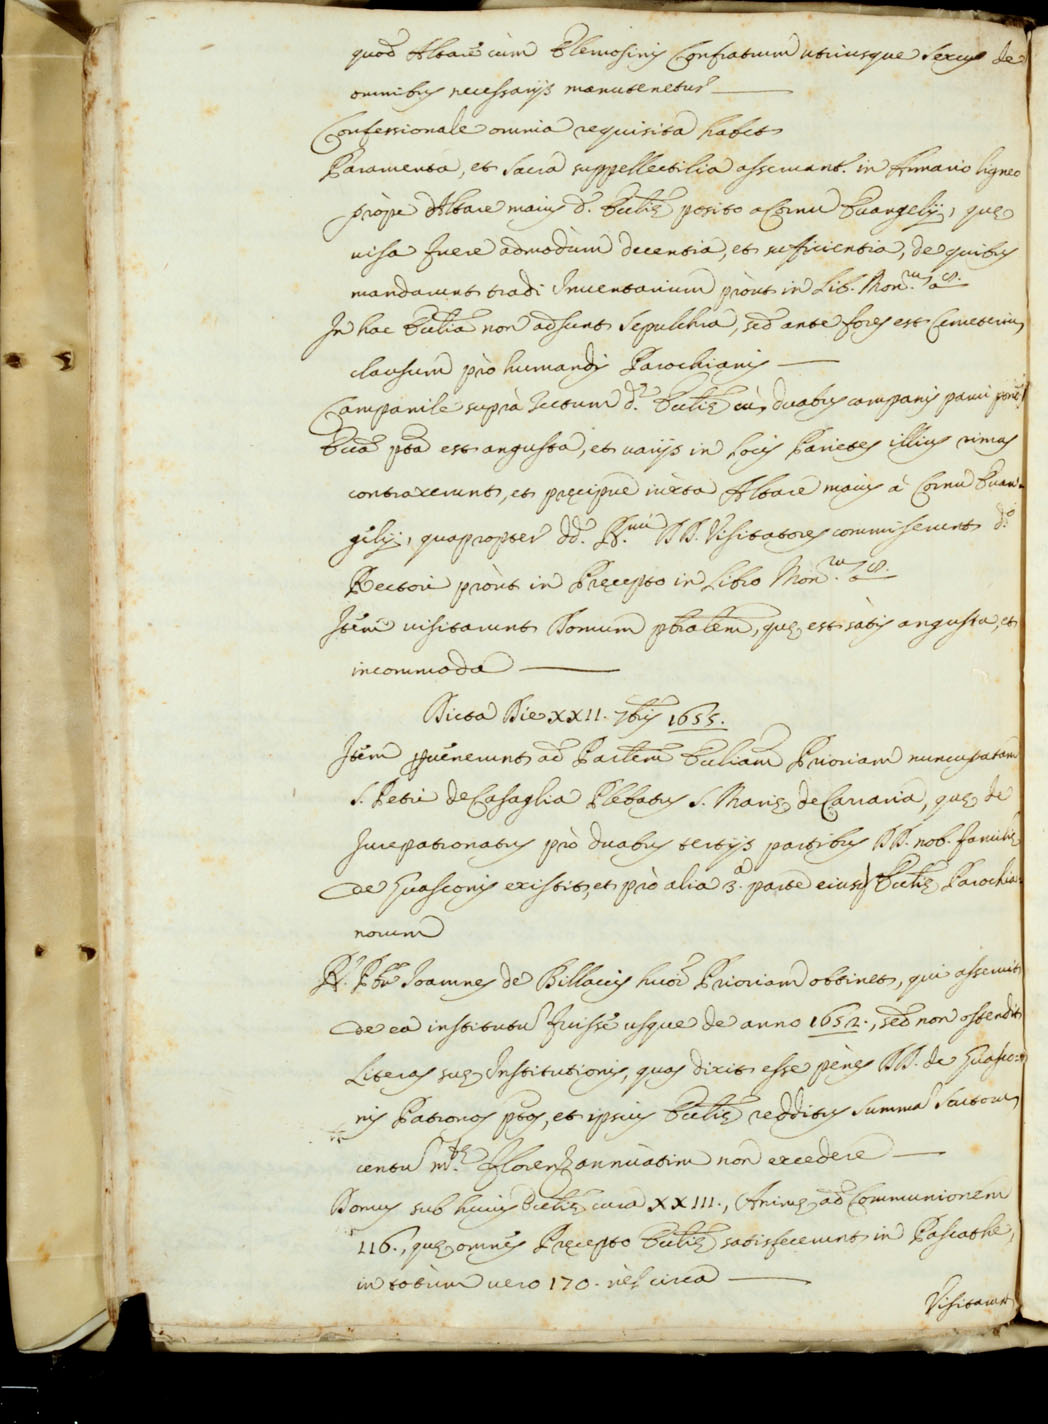 quod Altare cum Elemosinis Confratrum utriusque sexus de
omnibus necessarijs manutenetur
Confessionale omnia requisita habet
Paramenta, et sacra suppellectilia asservant. in Armario ligneo
pròpe Altare maius d. Ecclię posito a Cornu Evangelij, quę
visa fuere admodùm decentia, et sufficientia, de quibus
mandarunt tradi Inventarium pròut in Lib. Mon.
In hac Ecclia non adsunt Sepulchra, sed ante fores est Cemeterium
clausum prò humandis Parochianis
Campanile suprà tectum d. Ecclię cù duabus campanis parui
Ecclia pta est angusta, et varijs in locis Parietes illius rimas
contraxerunt, et pręcipuè iuxta Altare maius à Cornu Evan-
gelij, quapropter dd. R.mi DD. Visitatores commiserunt d.º
Rectori pròut in Pręcepto in Libro Mon.
Item visitarunt Domum pbralem, quę est sàtis angusta, et
incommoda
Dicta Die XXII. 7bris 1655.
Item pervenerunt ad Parlem Eccliam Prioriam nuncupatam
S. Petri de Casaglia Plebatus S. Marię de Carraria, quę de
Iurepatronatus prò duabus tertijs partibus DD. nob. familię
de Guasconis existit, et prò alia 3.ª parte eiusd Ecclię Parochia-
norum
R. Pbr Ioannes de Billacis huiꝰ Prioriam obtinet, qui asseruit
de ea institutũ fuisse usque de anno 1652., sed non ostendit
Literas suę Institutionis, quas dixit esse pènes DD. de Guasco-
nis Patronos ptos, et ipsius Ecclię redditus summã Scutorum
centũ m.tę Florenz annuatim non excedere
Domus sub huius Ecclię cura XXIII., Animę ad Communionem
116., quę omnes Pręcepto Ecclię satisfecerunt in Pascathe,
in totùm vero 170. vèl circa
Visitarunt